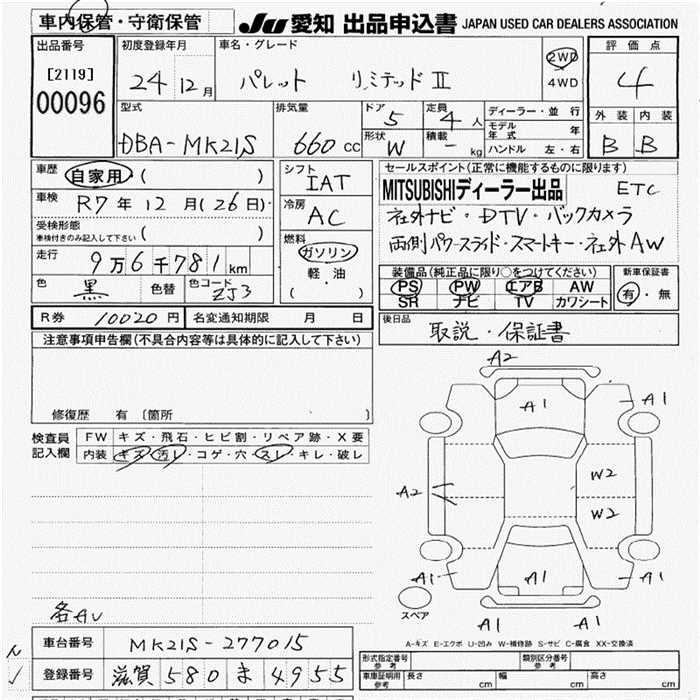 車内保管・守衛保管
JU 愛知 出品申込書 JAPAN USED CAR DEALERS ASSOCIATION
出品番号
[2119]
00096
初度登録年月
24 12月
車名・グレード
パレット リミテッドⅡ
2WD
4WD
評価点
4
外装 内装
B B
型式
DBA-MK21S
排気量
660cc
ドア
5
形状
W
定員
4人
積載
- kg
ディーラー・並行
モデル年式 年
ハンドル 左・右
車歴
自家用 ( )
車検
R7年12月(26日)
受検形態
車検付きのみ記入して下さい ( )
走行
9万6千781km
色
黒
色替
色コード
ZJ3
シフト
IAT
冷房
AC
燃料
ガソリン
軽・油
( )
セールスポイント(正常に機能するものに限ります)
MITSUBISHIディーラー出品 ETC
社外ナビ・DTV・バックカメラ
両側パワースライド・スマートキー・社外AW
装備品(純正品に限り○をつけてください)
PS PW エアB AW
SR ナビ TV カワシート
新車保証書
有・無
R券 10020円 名変通知期限 月 日
後日品
取説・保証書
注意事項申告欄(不具合内容等は具体的に記入して下さい)
修復歴 有 〔箇所 〕
検査員記入欄
FW キズ・飛石・ヒビ割・リペア跡・X要
内装 キズ・汚レ・コゲ・穴・スレ・キレ・破レ
A2
A1
A1
A1
W2
A2
W2
A1
A1
A1
A1
A1
スペア
各AU
A-キズ E-エクボ U-凹み W-補修跡 S-サビ C-腐食 XX-交換済
車台番号 MK21S-277015
登録番号 滋賀 580 ま 4955
形式指定番号 参考
類別区分番号 参考
車庫証明用 参考 長さ cm 幅 cm 高さ cm